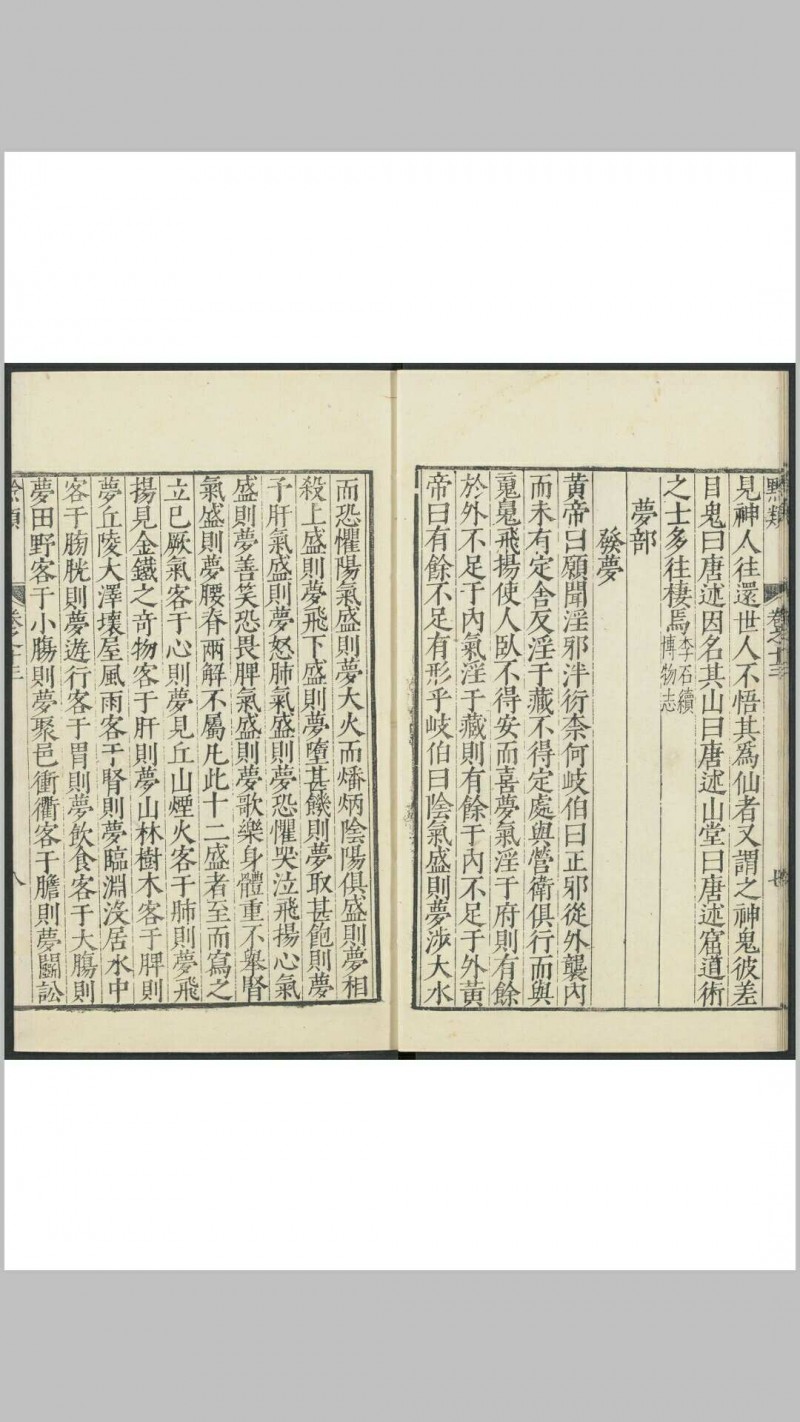 黙類
卷之十三
七
見神人往還世人不悟其為仙者又謂之神鬼彼羌
目鬼曰唐述因名其山曰唐述山堂曰唐述窟道術
之士多往棲焉李石續博物志
夢部
發夢
黃帝曰願聞淫邪泮衍柰何岐伯曰正邪從外襲內
而未有定舍反淫于藏不得定處與營衛俱行而與
䰟魄飛揚使人臥不得安而喜夢氣淫于府則有餘
於外不足于內氣淫于藏則有餘于內不足于外黃
帝曰有餘不足有形乎岐伯曰陰氣盛則夢涉大水
而恐懼陽氣盛則夢大火而燔焫陰陽俱盛則夢相
殺上盛則夢飛下盛則夢墮甚饑則夢取甚飽則夢
予肝氣盛則夢怒肺氣盛則夢恐懼哭泣飛揚心氣
盛則夢善笑恐畏脾氣盛則夢歌樂身體重不舉腎
氣盛則夢腰脊兩解不屬凡此十二盛者至而寫之
立已厥氣客于心則夢見丘山煙火客于肺則夢飛
揚見金鐵之奇物客于肝則夢山林樹木客于脾則
夢丘陵大澤壞屋風雨客于腎則夢臨淵沒居水中
客于膀胱則夢遊行客于胃則夢飲食客于大膓則
夢田野客于小膓則夢聚邑衝衢客于膽則夢鬭訟
卷之十三
八